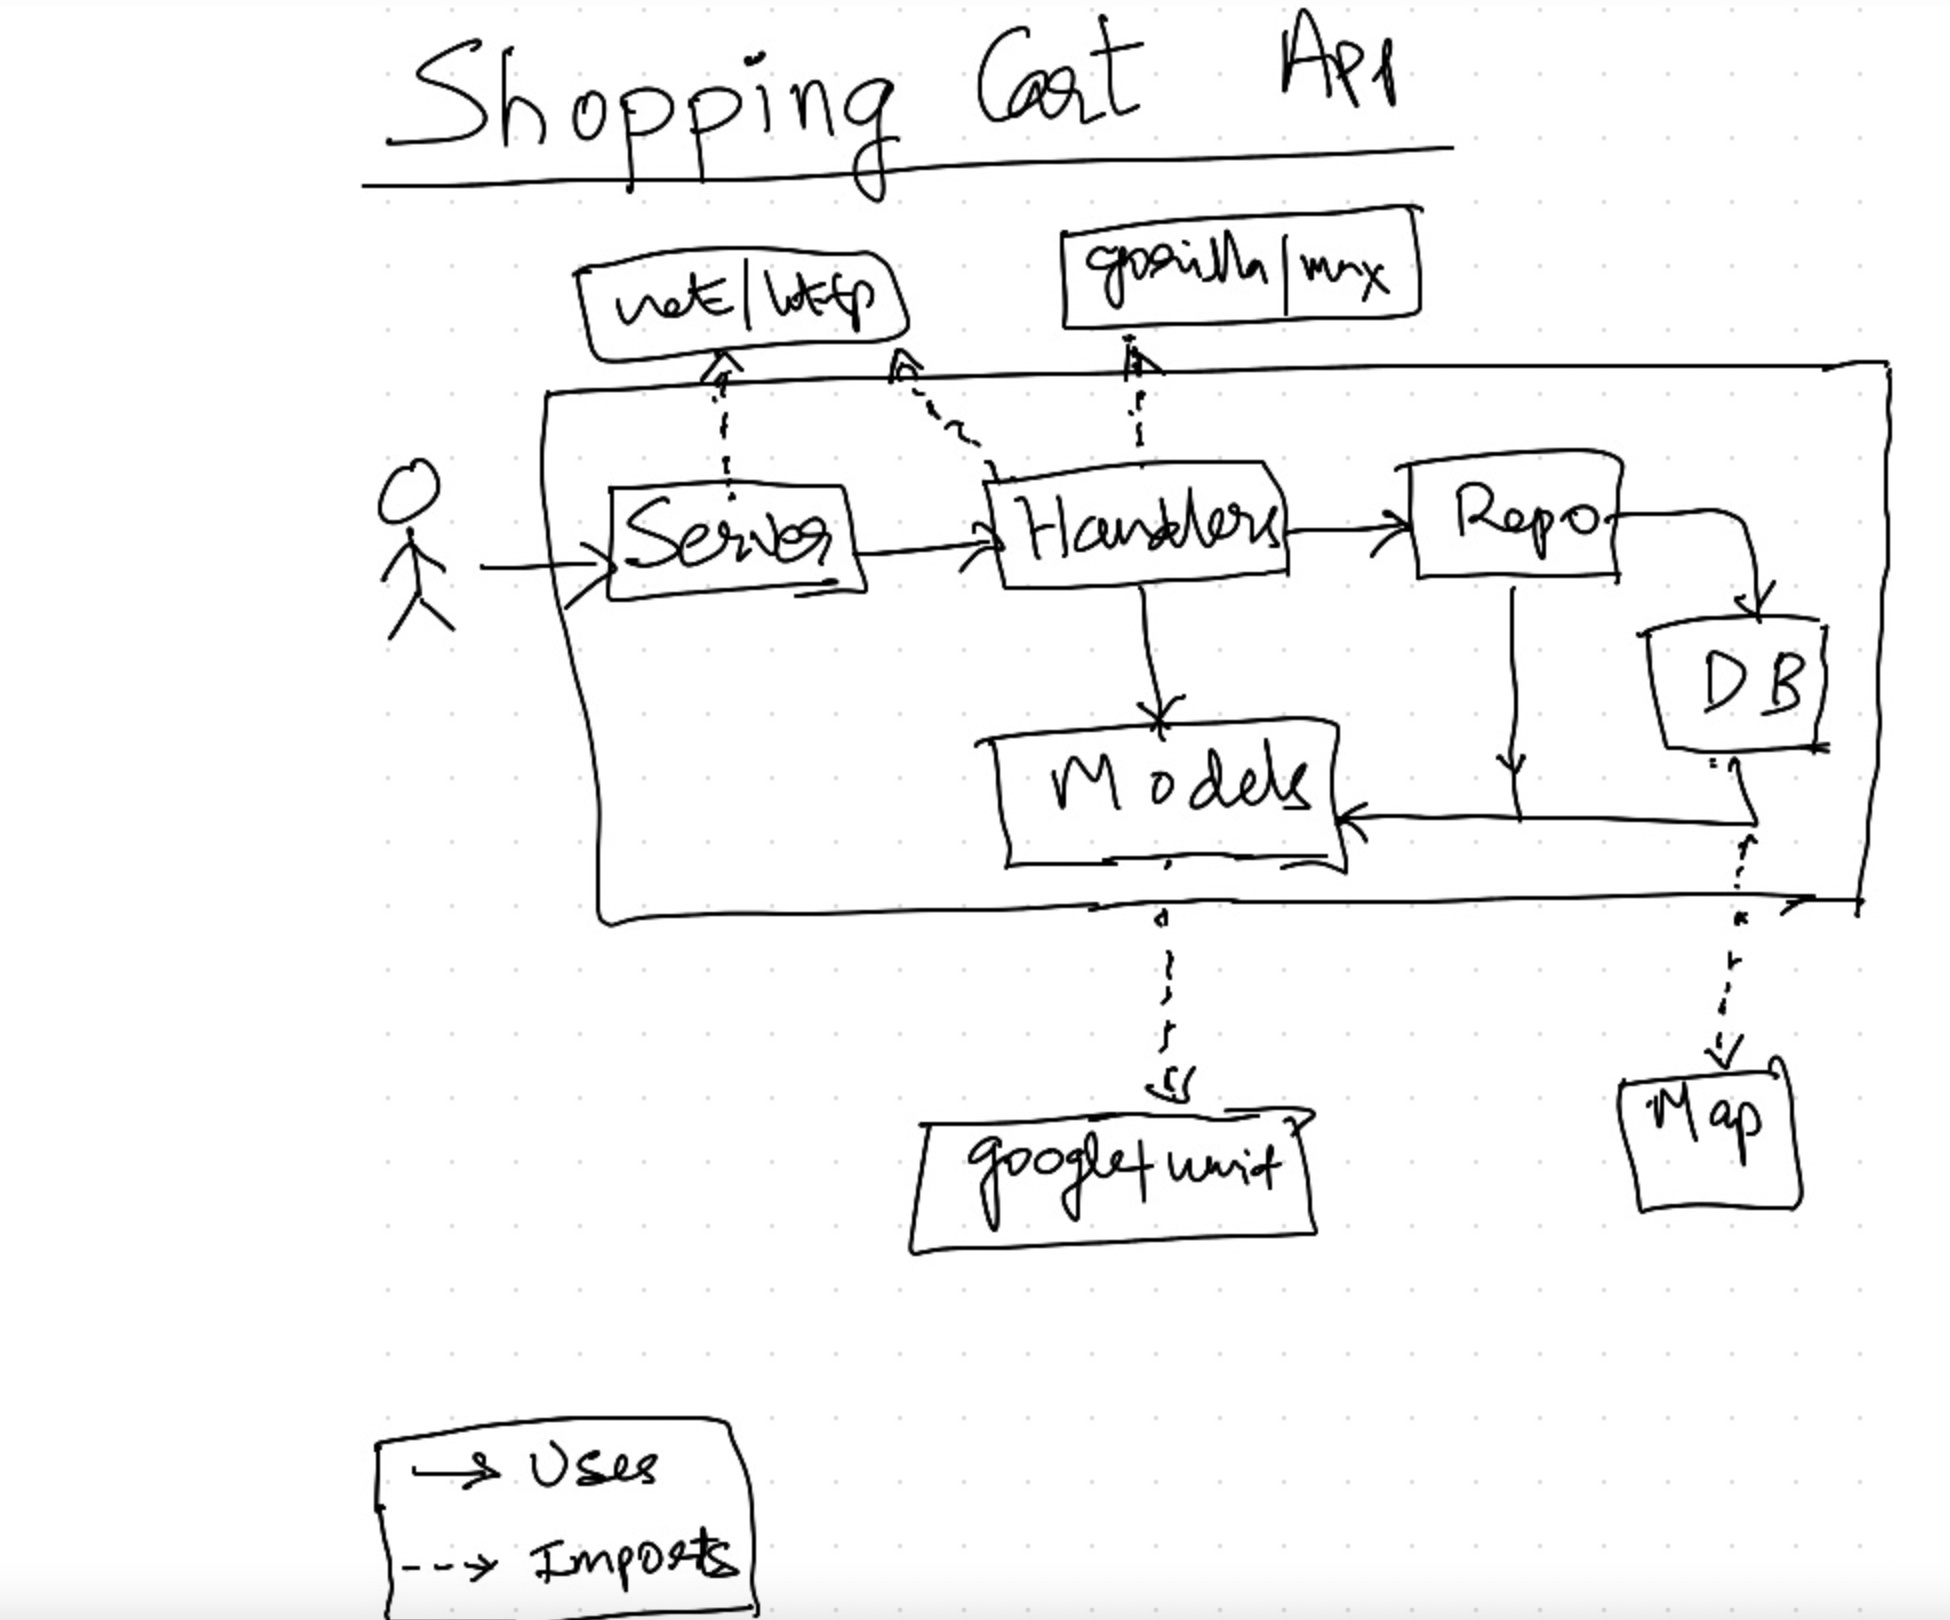 Shopping Cart App
net/http
gorilla/mux
Server
Handlers
Repo
DB
Models
google/
Map
Uses
Imports